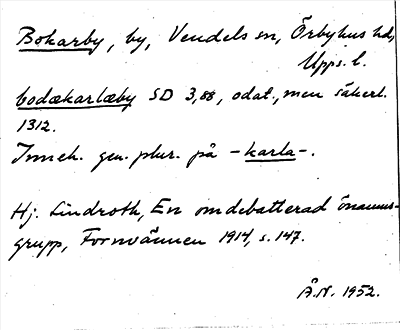 Bokarby, by, Vendels sn, Örbyhus hd,
Upps. l.
bodækarlæby SD 3,88, odat., men säkert
1312.
Inneh. gen. plur. på -karla-.
Hj. Lindroth, En omdebatterad önamns-
grupp, Fornvännen 1914, s. 147.
Å.N. 1952.